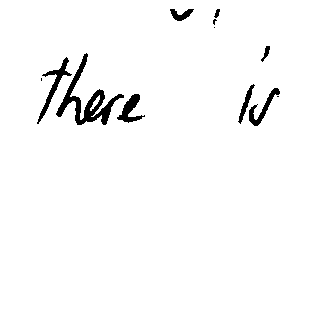 there is